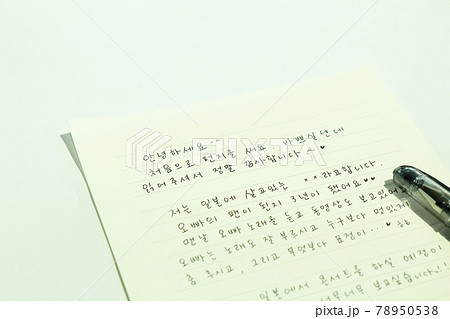 안녕하세요.
처음으로 편지를 써요 바쁘실텐데
읽어주셔서 정말 감사합니다~♥
저는 일본에 살고있는 **라고합니다.
오빠의 팬이 된지 3년이 됐어요♥♥
맨날 오빠 노래를 듣고 동영상도 보고있어요
오빠는 노래도 잘 부르시고 누구보다 멋있게
춤 추시고, 그리고 무엇보다 표정이...♥
일본에서 콘서트를 하실 예정이
보고싶습니다!!
PIXTA
pixta.jp - 78950538